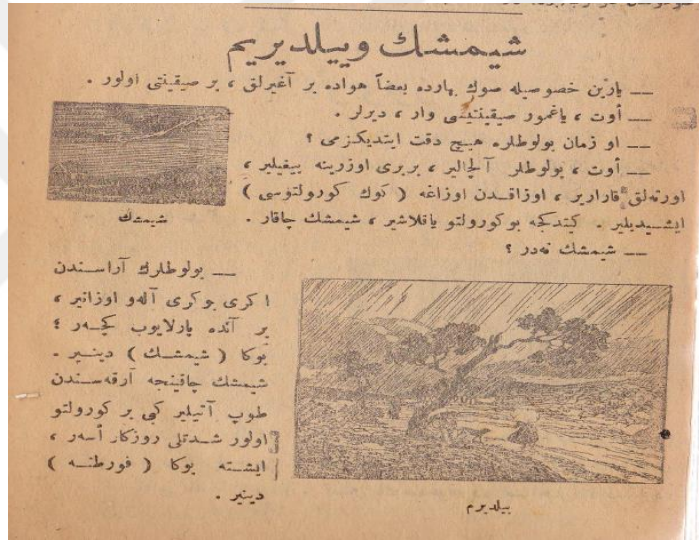 شيمشك وييلديريم
— يازين خصوصيله صوك بهارده بعضاً هواده بر آغيرلق ، بر صيقينتى اولور .
— أوت ، ياغمور صيقينتيسى وار ، ديرلر .
— او زمان بولوطلره هيچ دقت ايتديكزمى ؟
— أوت ، بولوطلر آلچالير ، بربرى اوزرينه ييغيلير ،
اورته‌لق قارارير ، اوزاقدن اوزاغه ( كوك كورولتوسى )
ايشيديلير . كيتدكجه بو كورولتو ياقلاشير ، شيمشك چاقار .
— شيمشك نه‌در ؟
شيمشك
— بولوطلرك آراسندن
اكرى بوكرى آلهو اوزانير ،
بر آنده پارلايوب كچه‌ر ؛
بوكا ( شيمشك ) دينير .
شيمشك چاقينجه آرقه‌سندن
طوپ آتيلير كبى بر كورولتو
اولور شدتلى روزكار أسه‌ر ،
ايشته بوكا ( فورطنه )
دينير .
ييلديرم